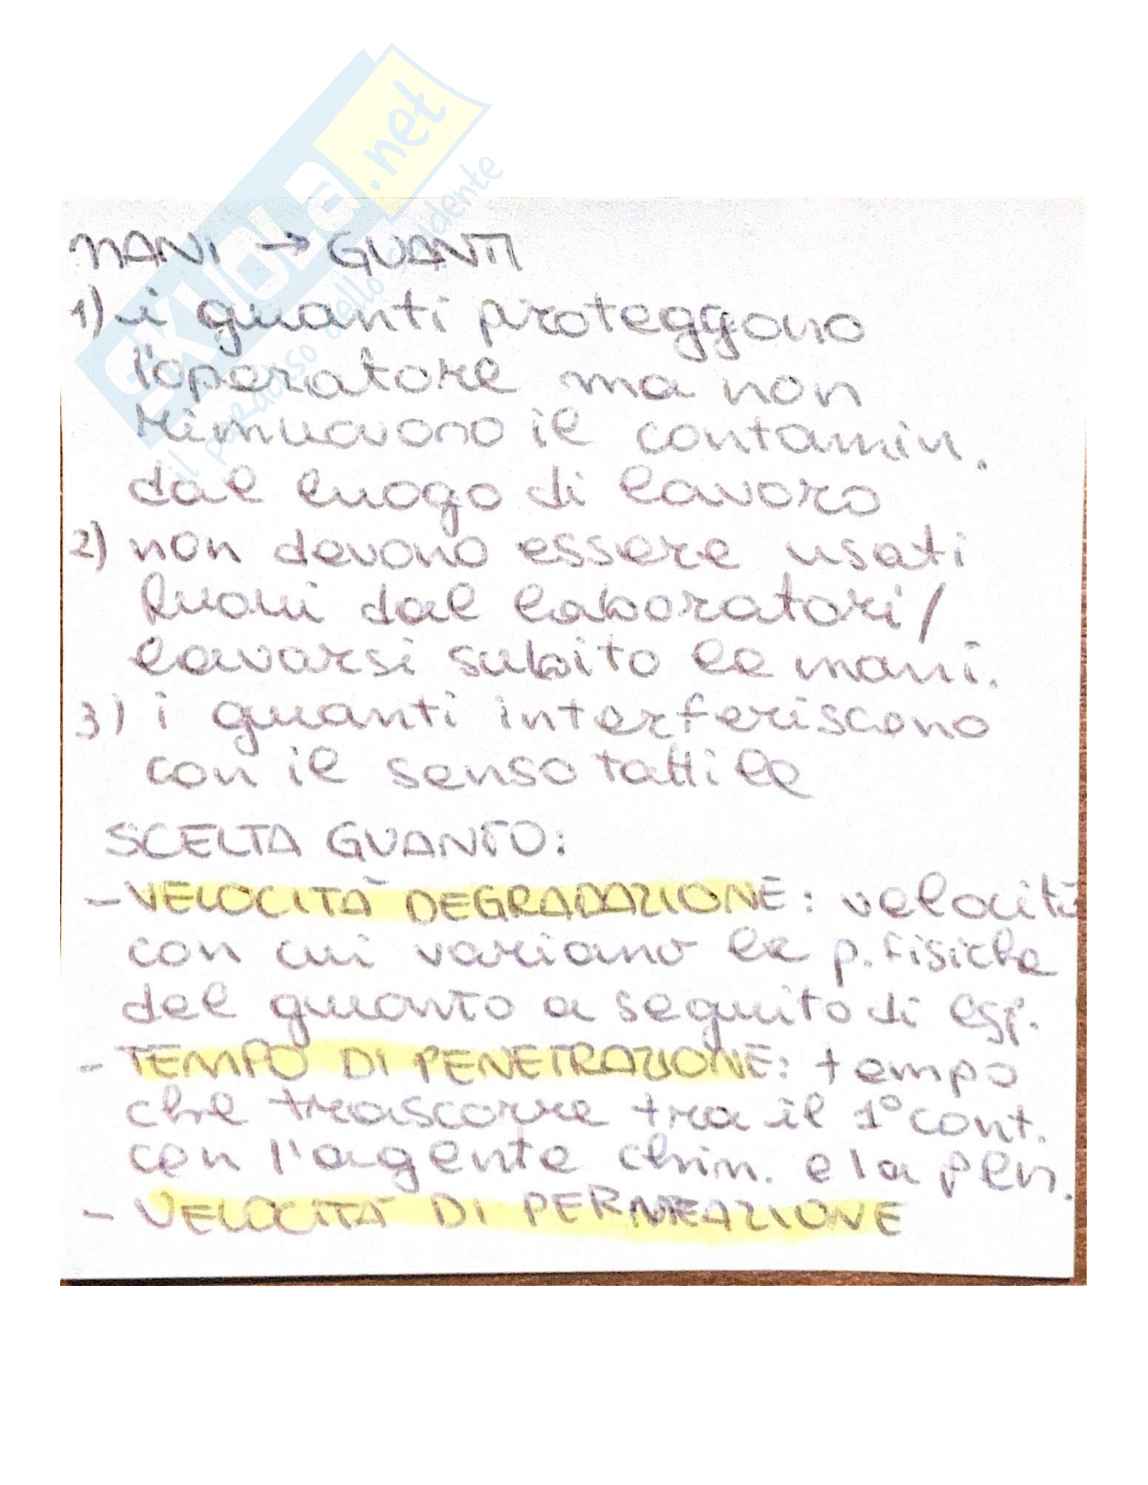 SKUOLA.net
il paradiso dello studente
MANI → GUANTI
1) i guanti proteggono
l'operatore ma non
rimuovono il contamin.
dal luogo di lavoro
2) non devono essere usati
fuori dal laboratori/
lavarsi subito le mani.
3) i guanti interferiscono
con il senso tattile
SCELTA GUANTO:
- VELOCITÀ DEGRADAZIONE: velocità
con cui variano le p. fisiche
del guanto a seguito di esp.
- TEMPO DI PENETRAZIONE: tempo
che trascorre tra il 1° cont.
con l'agente chim. e la pen.
- VELOCITÀ DI PERMEAZIONE